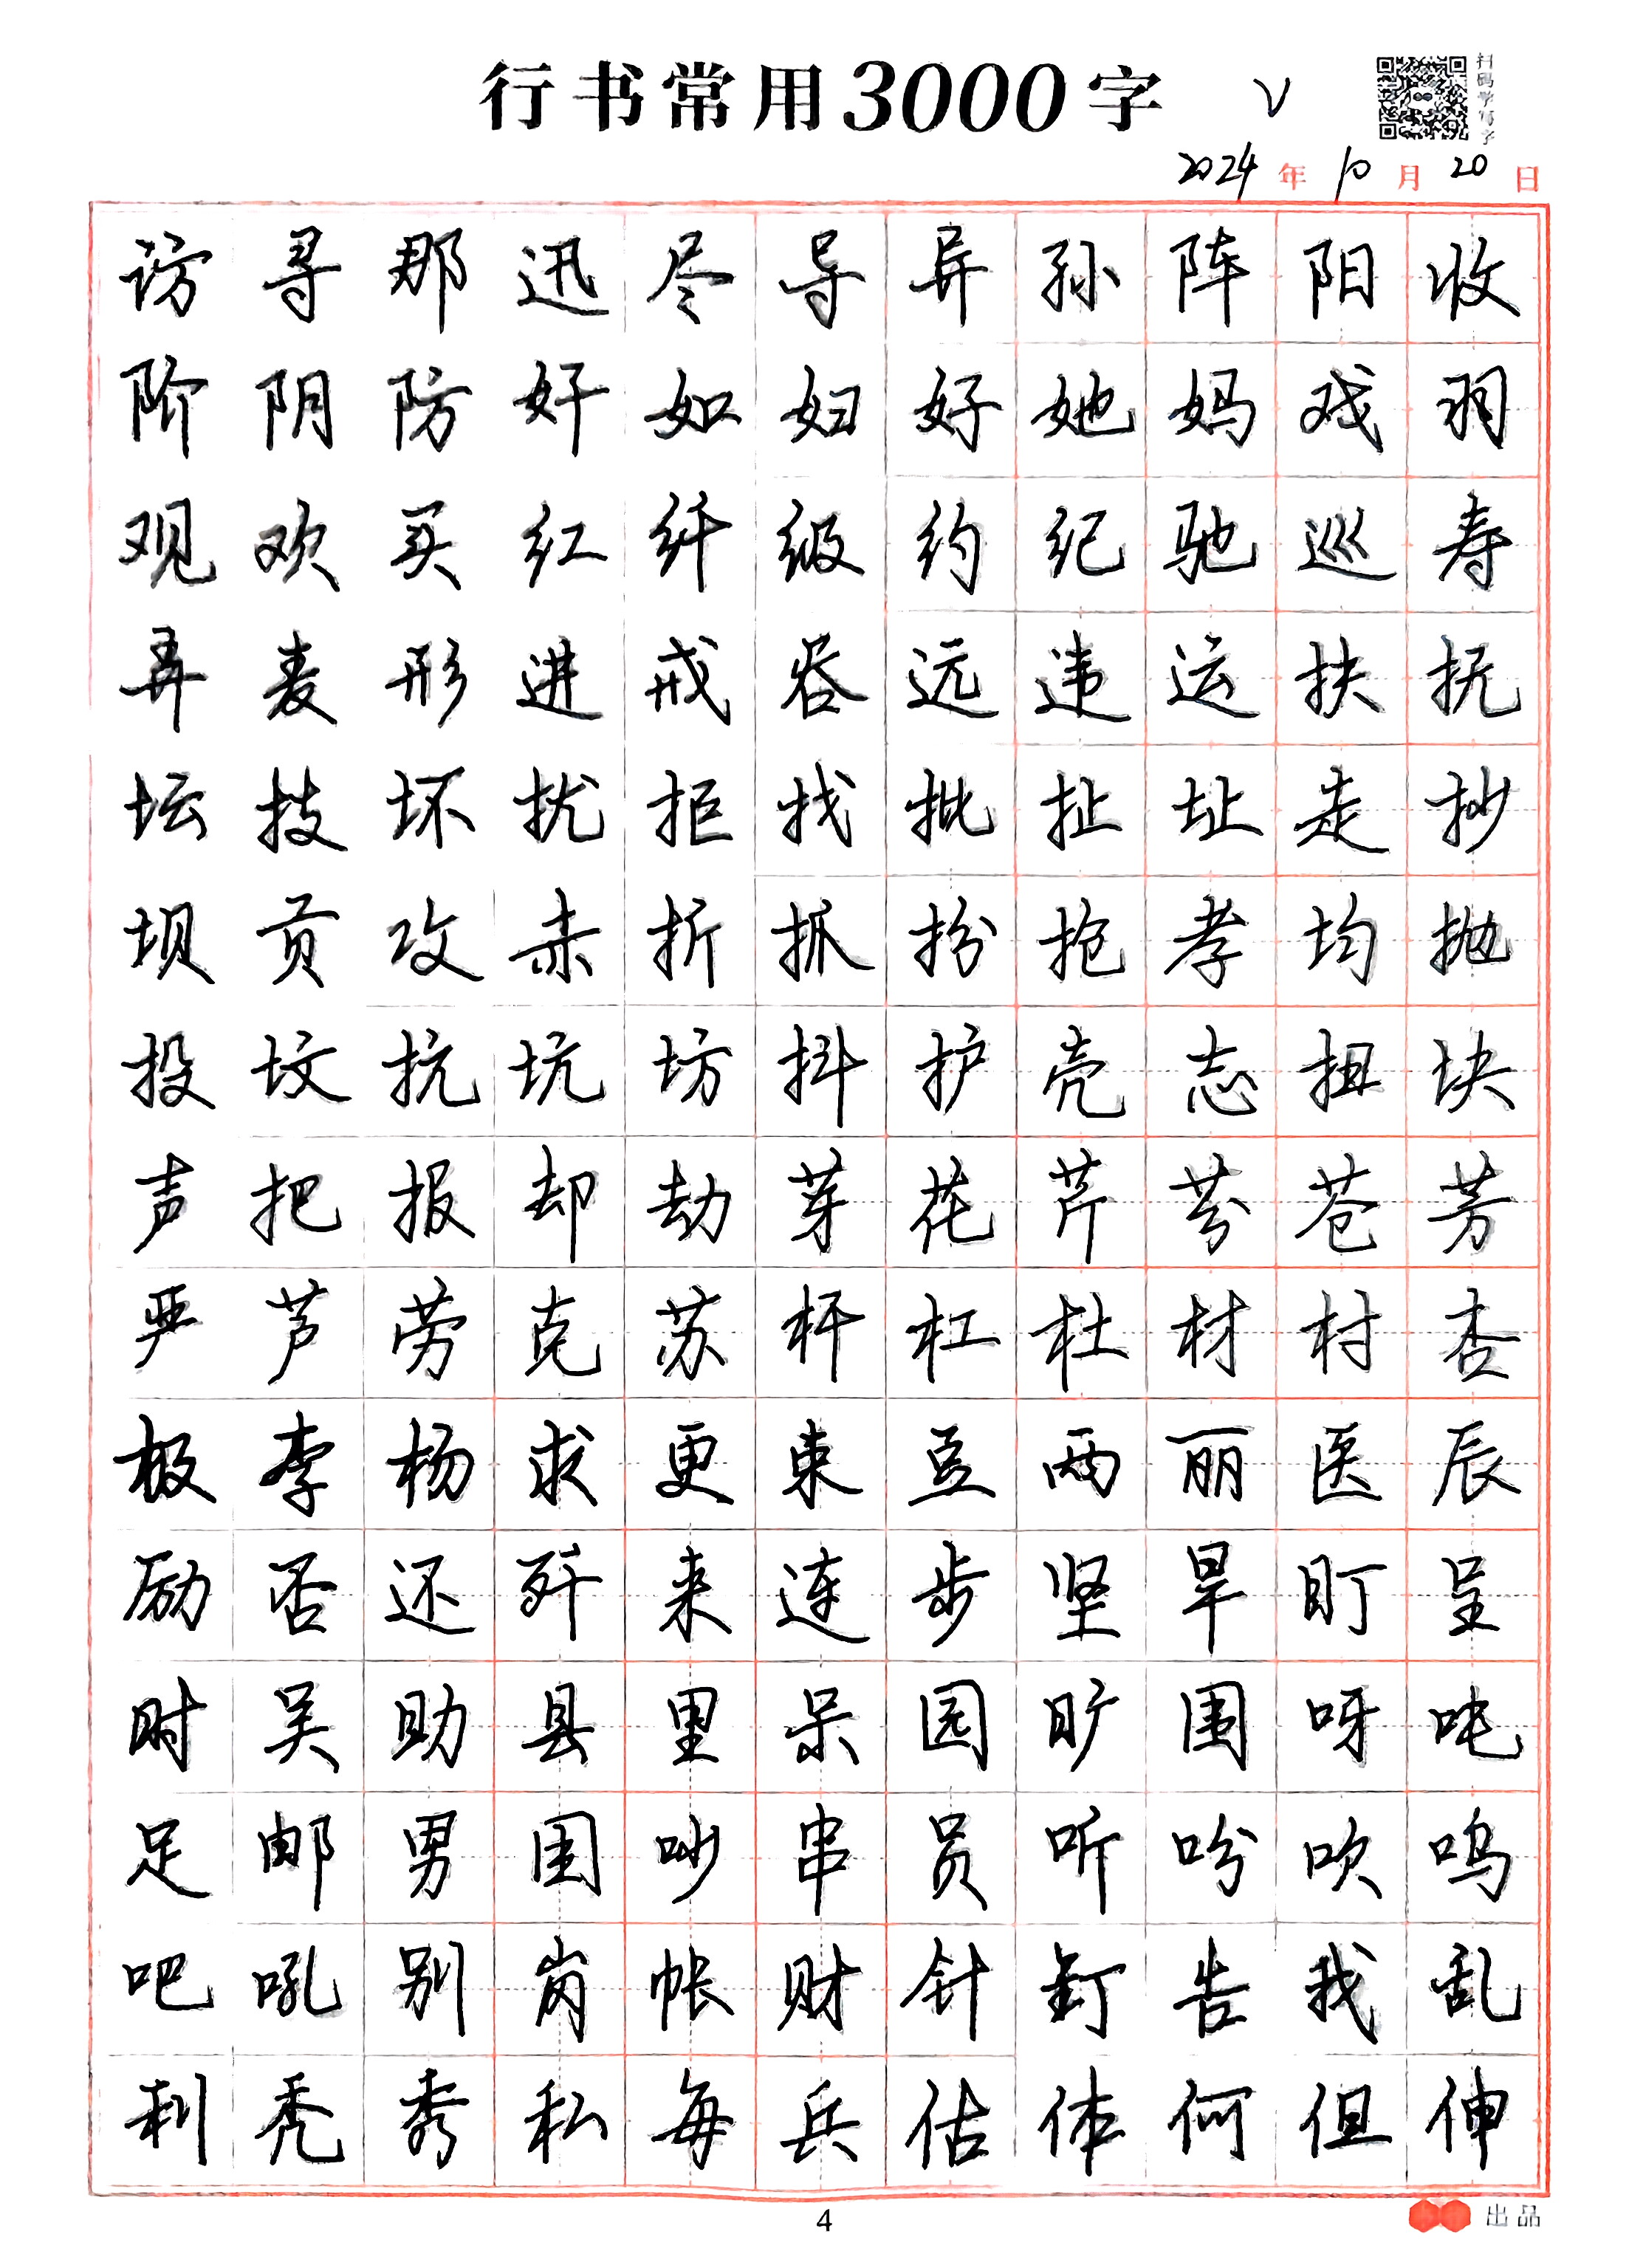 行书常用3000字 V
扫码学写字
2024年10月20日
访寻那迅尽导异孙阵阳收
阶阴防奸如妇好她妈戏羽
观欢买红纤级约纪驰巡寿
弄麦形进戒吞远违运扶抚
坛技坏扰拒找批扯址走抄
坝贡攻赤折抓扮抢孝均抛
投坟抗坑坊抖护壳志扭块
声把报却劫芽花芹芬苍芳
严芦劳克苏杆杠杜材村杏
极李杨求更束豆两丽医辰
励否还歼来连步坚旱盯呈
时吴助县里呆园旷围呀吨
足邮男困吵串员听吩吹呜
吧吼别岗帐财针钉告我乱
利秃秀私每兵估体何但伸
4
出品